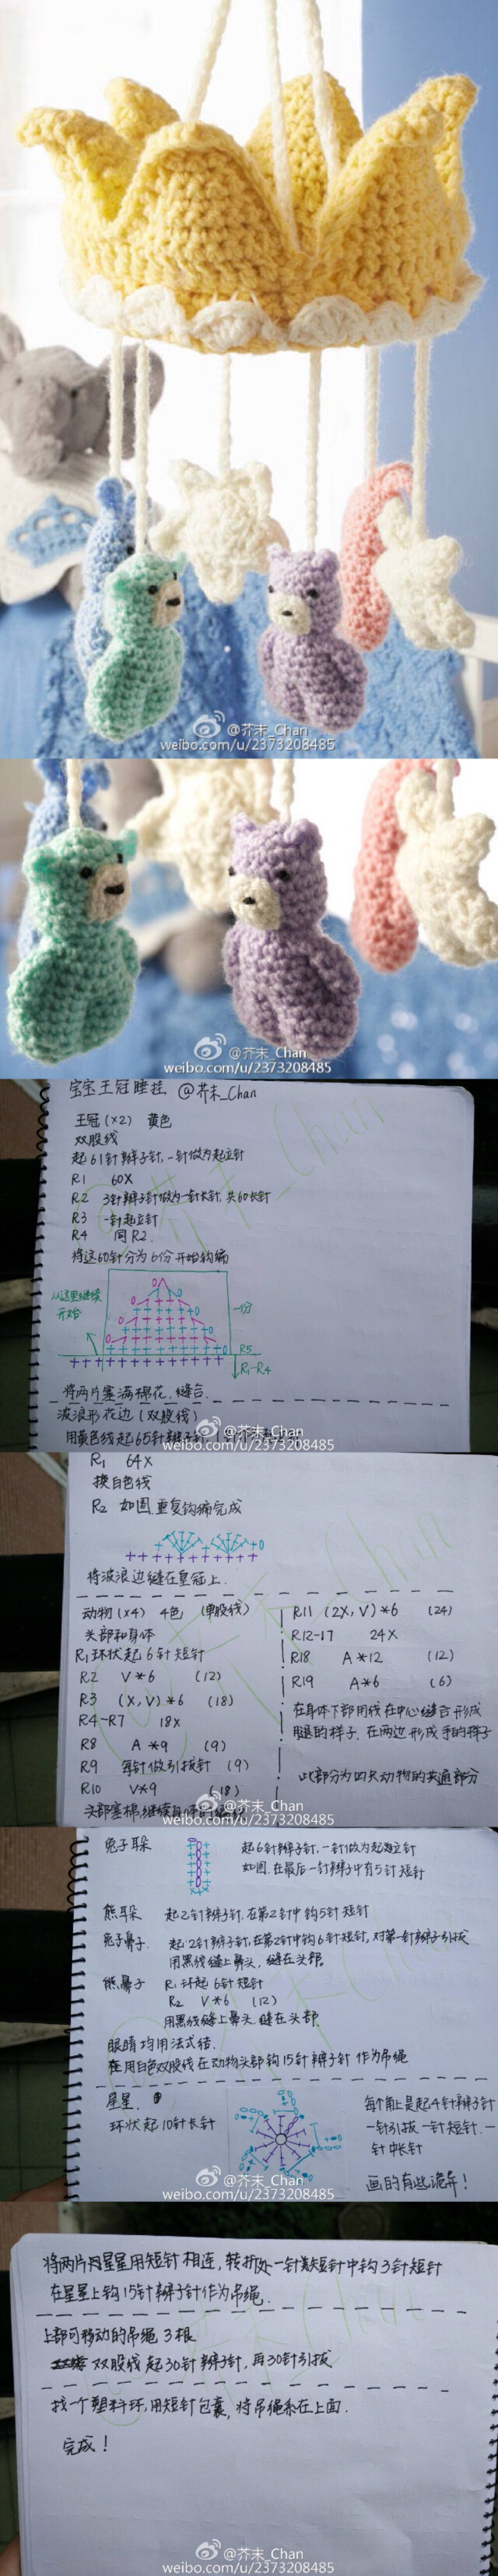 @芥末_Chan
weibo.com/u/2373208485
@芥末_Chan
weibo.com/u/2373208485
宝宝王冠睡挂 @芥末_Chan
王冠(×2) 黄色
双股线
起61针辫子针,一针做为起立针
R1 60X
R2 3针辫子针做为一针长针,共60长针
R3 一针起立针
R4 同R2.
将这60针分为6份开始钩编
从这里继续
开始
一份
R5
R1-R4
将两片塞满棉花,缝合.
波浪形花边(双股线)
用黄色线起65针辫子针,
@芥末_Chan
weibo.com/u/2373208485
R1 64X
换白色线
R2 如图,重复钩编完成
将波浪边缝在皇冠上.
动物(×4) 4色 (单股线)
头部和身体
R1 环状起6针短针
R2 V*6 (12)
R3 (X,V)*6 (18)
R4-R7 18X
R8 A*9 (9)
R9 每针做引拔针 (9)
R10 V*9 (18)
头部塞棉,继续
R11 (2X,V)*6 (24)
R12-17 24X
R18 A*12 (12)
R19 A*6 (6)
在身体下部用线在中心缝合形成
腿的样子.在两边形成手的样子
此部分为四只动物的共通部分
@芥末_Chan
weibo.com/u/2373208485
兔子耳朵
起6针辫子针,一针做为起立针
如图.在最后一针辫子中有5针短针
熊耳朵 起2针辫子针,在第2针中钩5针短针
兔子鼻子. 起2针辫子针,在第2针中钩6针短针,对第一针辫子引拔
用黑线缝上鼻头,缝在头部.
熊鼻子 R1 环起6针短针
R2 V*6 (12)
用黑线缝上鼻头.缝在头部.
眼睛均用法式结.
用白色双股线在动物头部钩15针辫子针作为吊绳
星星.
环状起10针长针
每个角上是起4针辫子针
一针引拔一针短针.一
针中长针
画的有些诡异!
@芥末_Chan
weibo.com/u/2373208485
将两片星星用短针相连,转折处一针短针中钩3针短针
在星星上钩15针辫子针作为吊绳.
上部可移动的吊绳3根
双股线起30针辫子针,再30针引拔
找一个塑料环,用短针包裹,将吊绳系在上面.
完成!
@芥末_Chan
weibo.com/u/2373208485